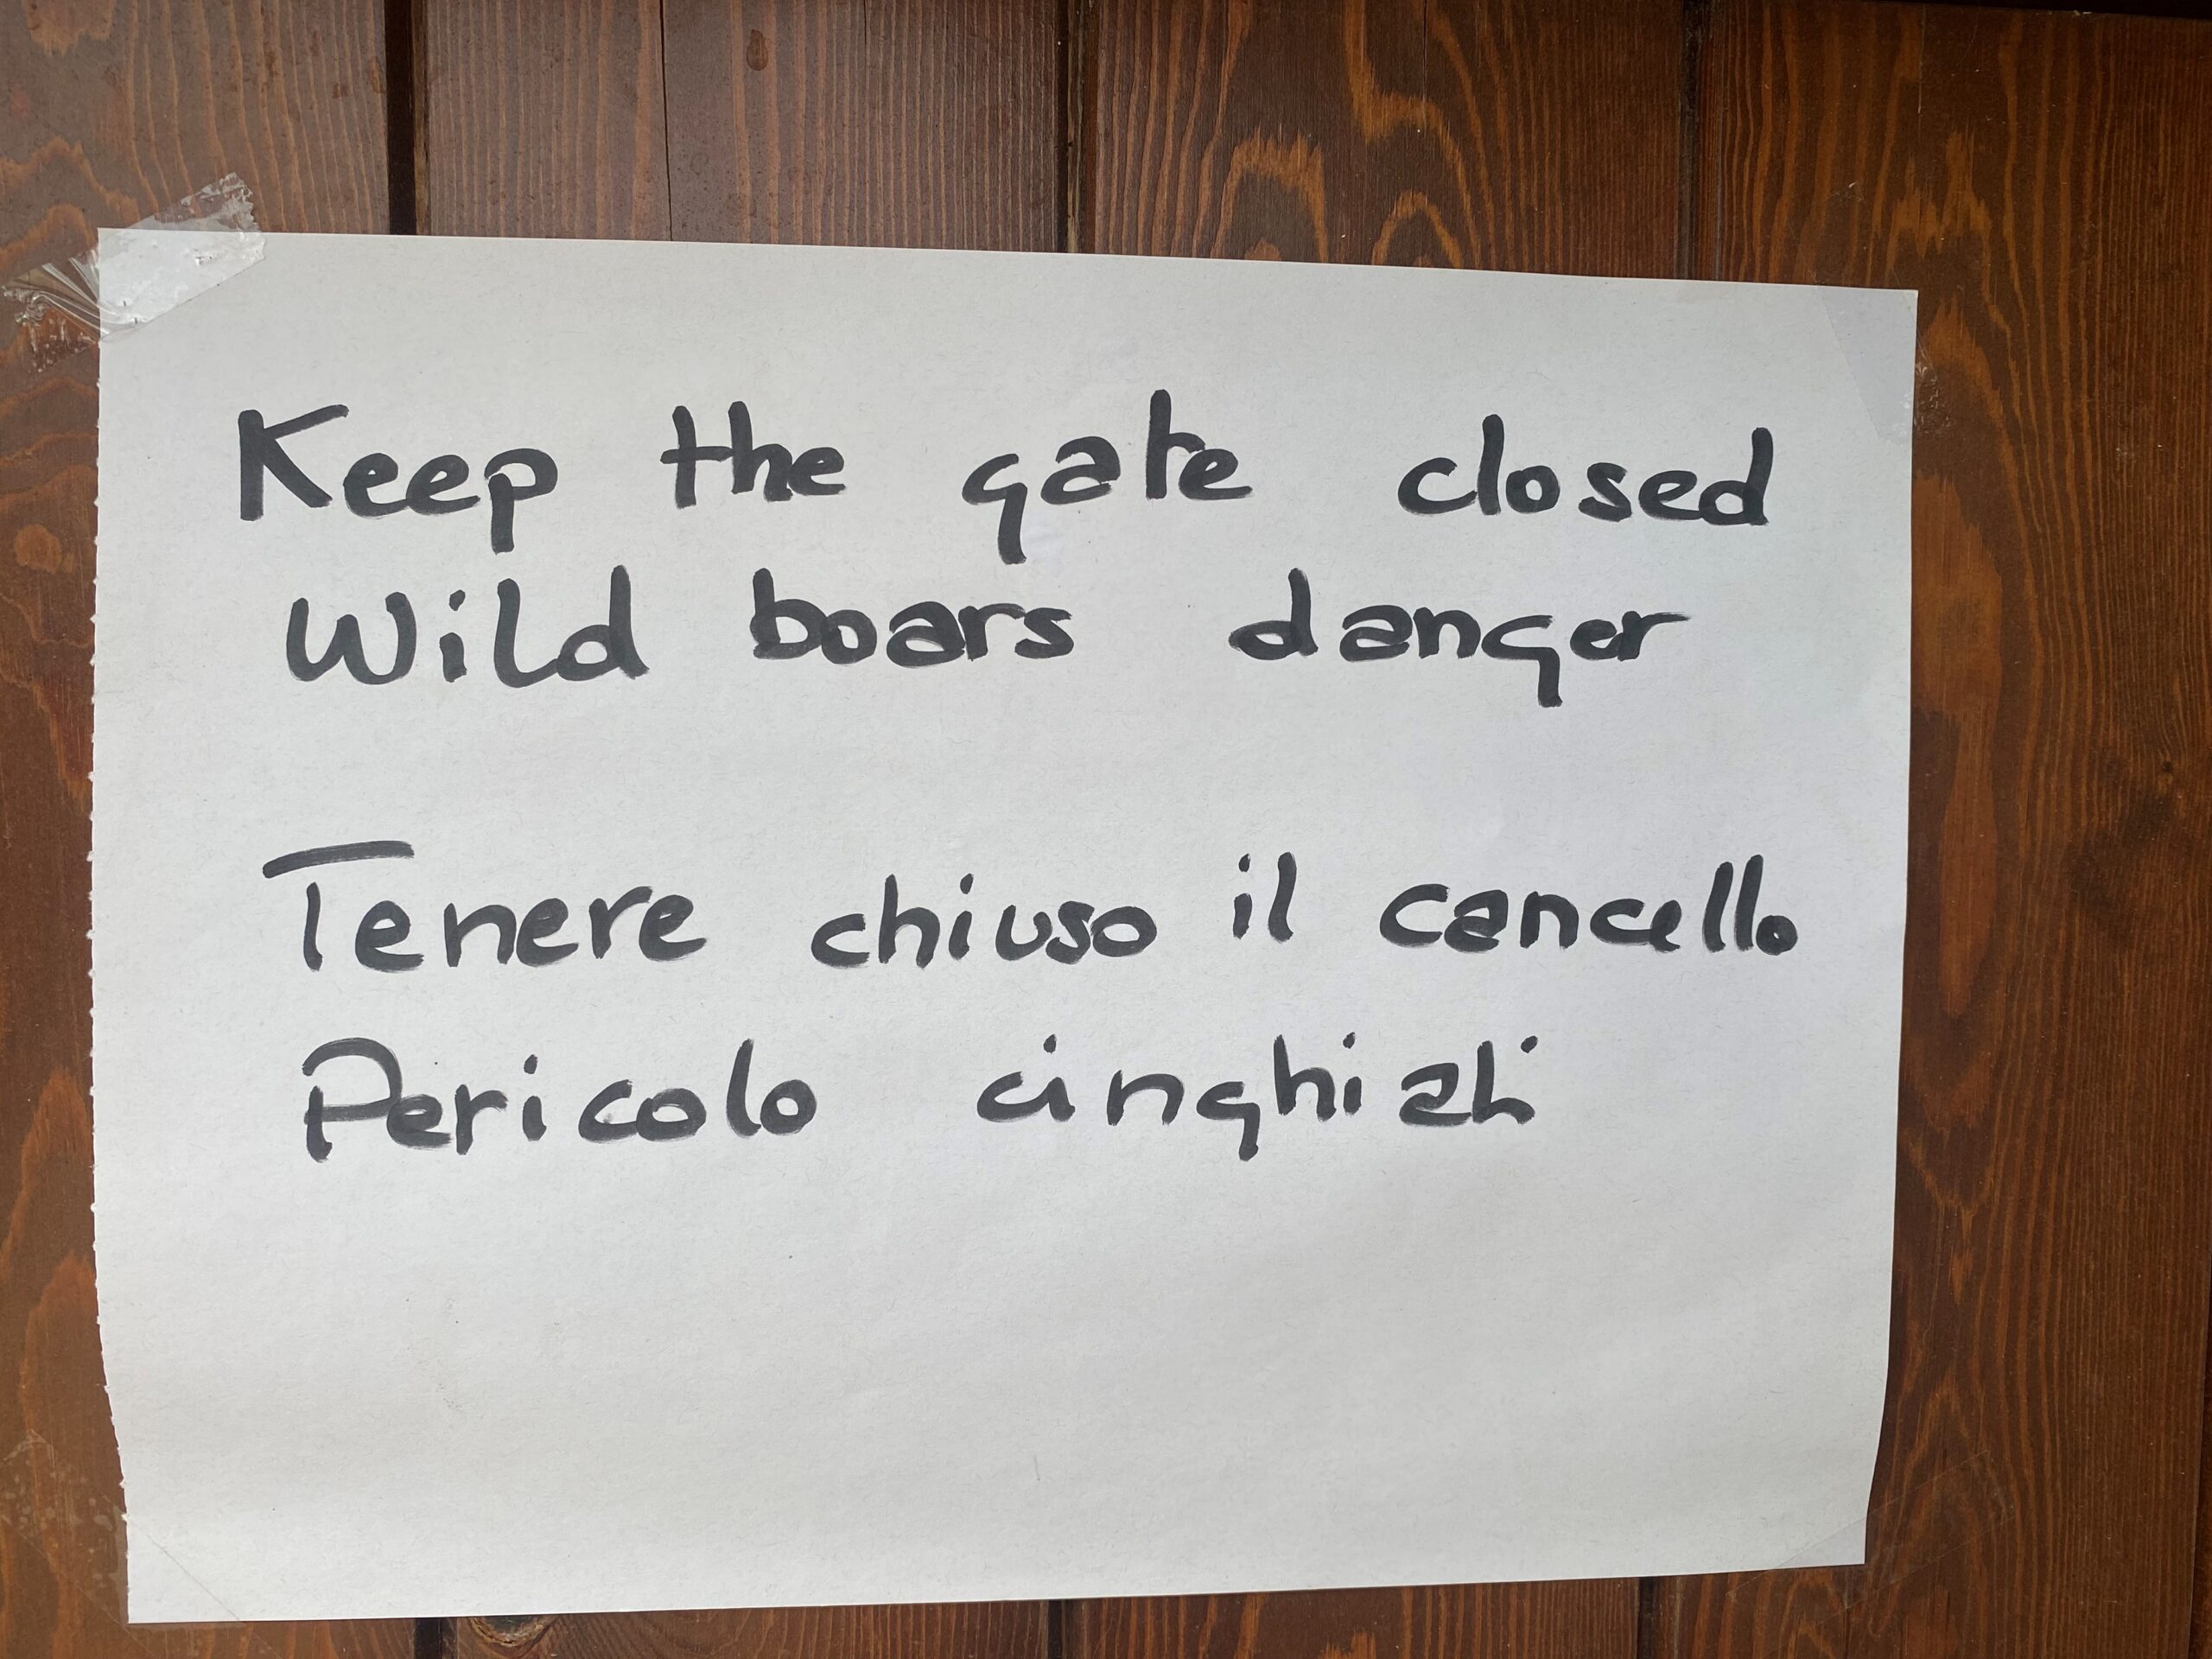 Keep the gate closed
Wild boars danger
Tenere chiuso il cancello
Pericolo cinghiali